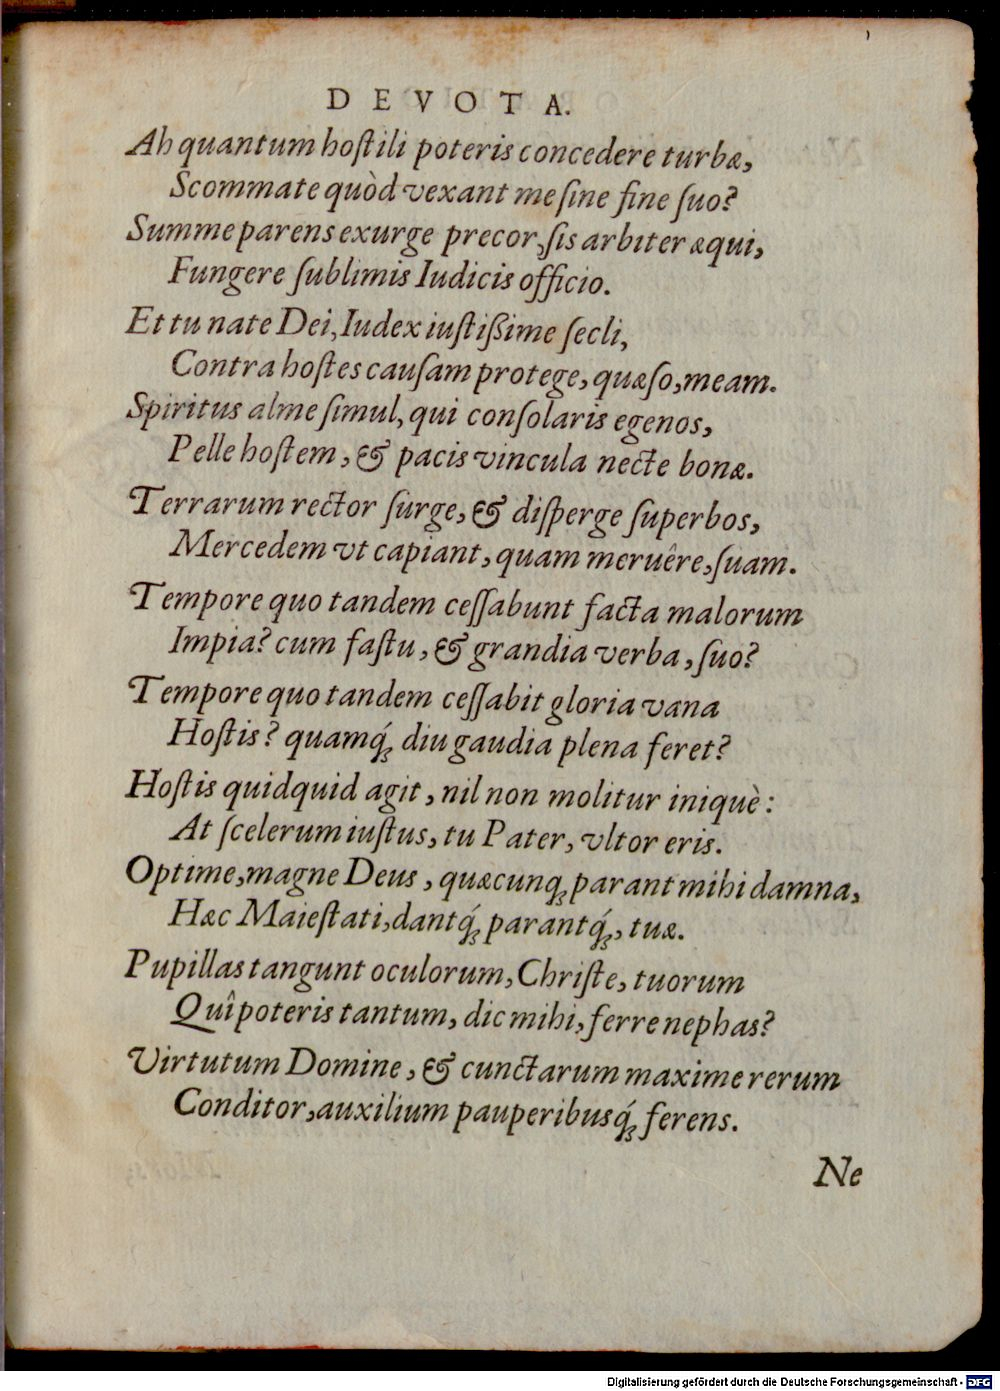 DEVOTA.
Ah quantum hoſtili poteris concedere turbæ,
Scommate quòd vexant me ſine fine ſuo?
Summe parens exurge precor, ſis arbiter æqui,
Fungere ſublimis Iudicis officio.
Et tu nate Dei, Iudex iuſtißime ſecli,
Contra hoſtes cauſam protege, quæſo, meam.
Spiritus alme ſimul, qui conſolaris egenos,
Pelle hoſtem, & pacis vincula necte bonæ.
Terrarum rector ſurge, & diſperge ſuperbos,
Mercedem vt capiant, quam meruêre, ſuam.
Tempore quo tandem ceſſabunt facta malorum
Impia? cum faſtu, & grandia verba, ſuo?
Tempore quo tandem ceſſabit gloria vana
Hoſtis? quamq́; diu gaudia plena feret?
Hoſtis quidquid agit, nil non molitur iniquè:
At ſcelerum iuſtus, tu Pater, vltor eris.
Optime, magne Deus, quæcunq; parant mihi damna,
Hæc Maieſtati, dantq́; parantq́;, tuæ.
Pupillas tangunt oculorum, Chriſte, tuorum
Quî poteris tantum, dic mihi, ferre nephas?
Virtutum Domine, & cunctarum maxime rerum
Conditor, auxilium pauperibusq́; ferens.
Ne
Digitalisierung gefördert durch die Deutsche Forschungsgemeinschaft - DFG